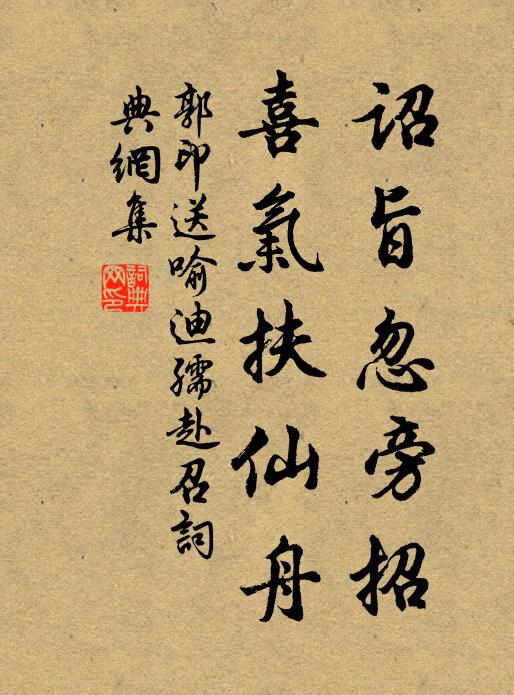 詔旨忽旁招
喜氣扶仙舟
郭印送喻迪孺赴召詞
典網集
詞典網印